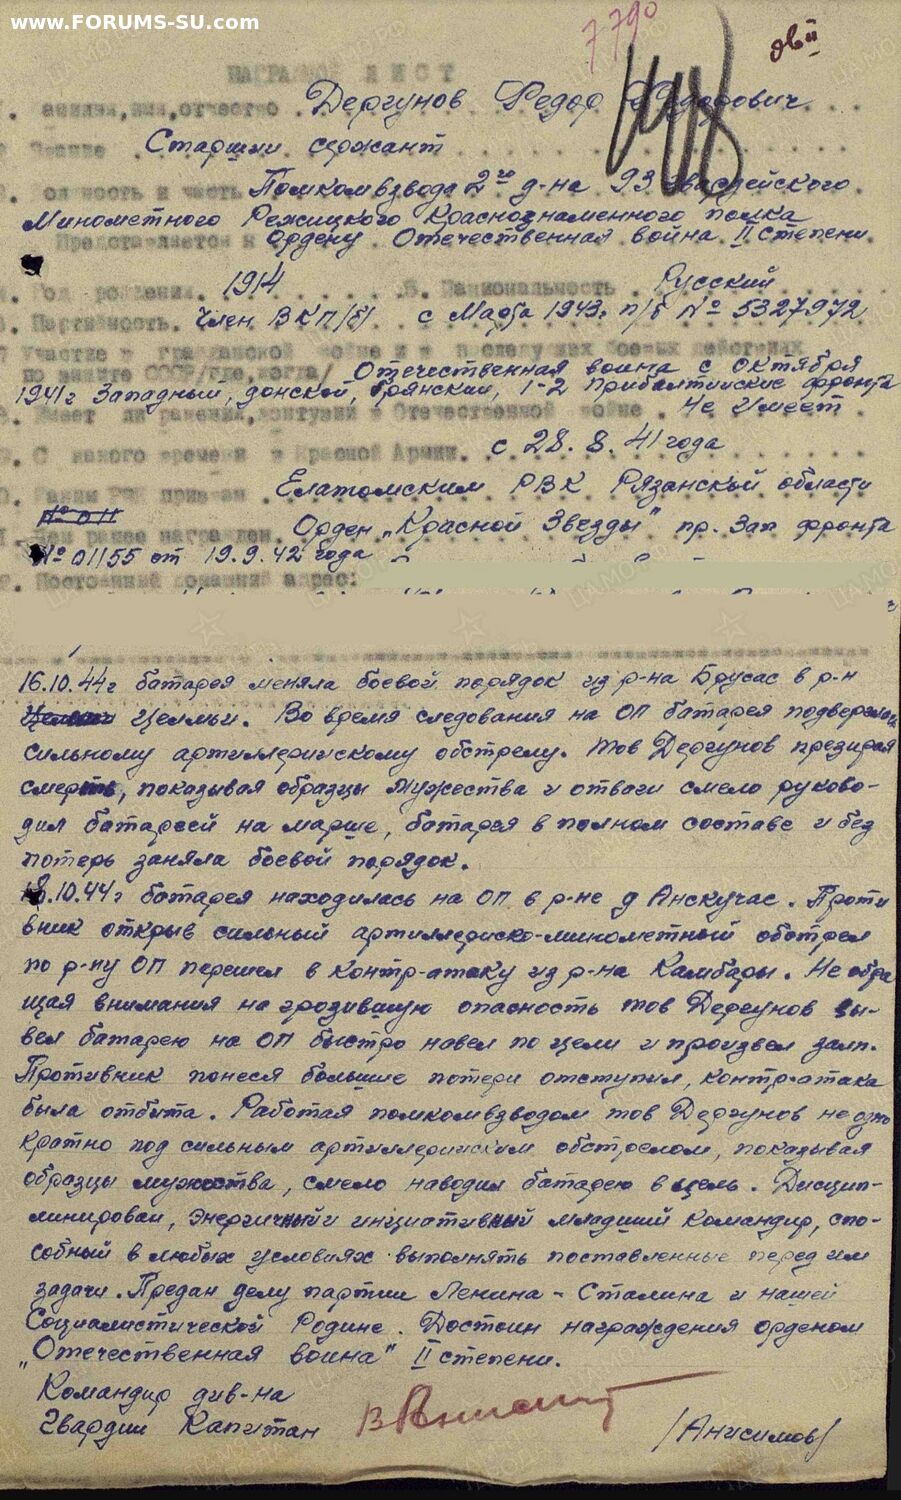 www.FORUMS-SU.com
7790
НАГРАДНОЙ ЛИСТ
Фамилия, имя, отчество Дергунов Федор Федорович
Звание Старший сержант
Должность и часть Помкомвзвода 2го д-на 93 гвардейского
Минометного Режицкого Краснознаменного полка
Представляется к Ордену Отечественная война II степени.
4. Год рождения. 1914 5. Национальность Русский
6. Партийность. Член ВКП/б/ с Марта 1943г п/б № 5327972
7 Участие в гражданской войне и в последующих боевых действиях
по защите СССР/где, когда/ Отечественная война с октября
1941г Западный, донской, брянский, 1-2 Прибалтийские фронта
8. Имеет ли ранения, контузии в Отечественной войне. Не имеет.
9. С какого времени в Красной Армии. с 28.8.41 года
10. Каким РВК призван Елатомским РВК Рязанской области
№ 011
11. Чем ранее награжден. Орден „Красной Звезды" пр. Зап фронта
№ 01155 от 19.9.42 года
12. Постоянный домашний адрес:
16.10.44г батарея меняла боевой порядок из р-на Брусас в р-н
Целмьи. Во время следования на ОП батарея подверглась
сильному артиллерийскому обстрелу. тов Дергунов презирая
смерть, показывая образцы мужества и отваги смело руково-
дил батареей на марше, батарея в полном составе и без
потерь заняла боевой порядок.
18.10.44г батарея находилась на ОП в р-не д Анскучас. Проти
вник открыв сильный артиллериско-минометный обстрел
по р-ну ОП перешел в контр-атаку из р-на Камбары. Не обра
щая внимания на грозившую опасность тов Дергунов вы-
вел батарею на ОП быстро навел по цели и произвел залп.
Противник понеся большие потери отступил, контр-атака
была отбита. Работая помкомвзводом тов Дергунов не одно
кратно под сильным артиллерийским обстрелом, показывая
образцы мужества, смело наводил батарею в цель. Дисцип-
линирован, энергичный и инициативный младший командир, спо-
собный в любых условиях выполнять поставленные перед им
задачи. Предан делу партии Ленина - Сталина и нашей
Социалистической Родине. Достоин награждения орденом
„Отечественная война" II степени.
Командир див-на
Гвардии Капитан /Анисимов/